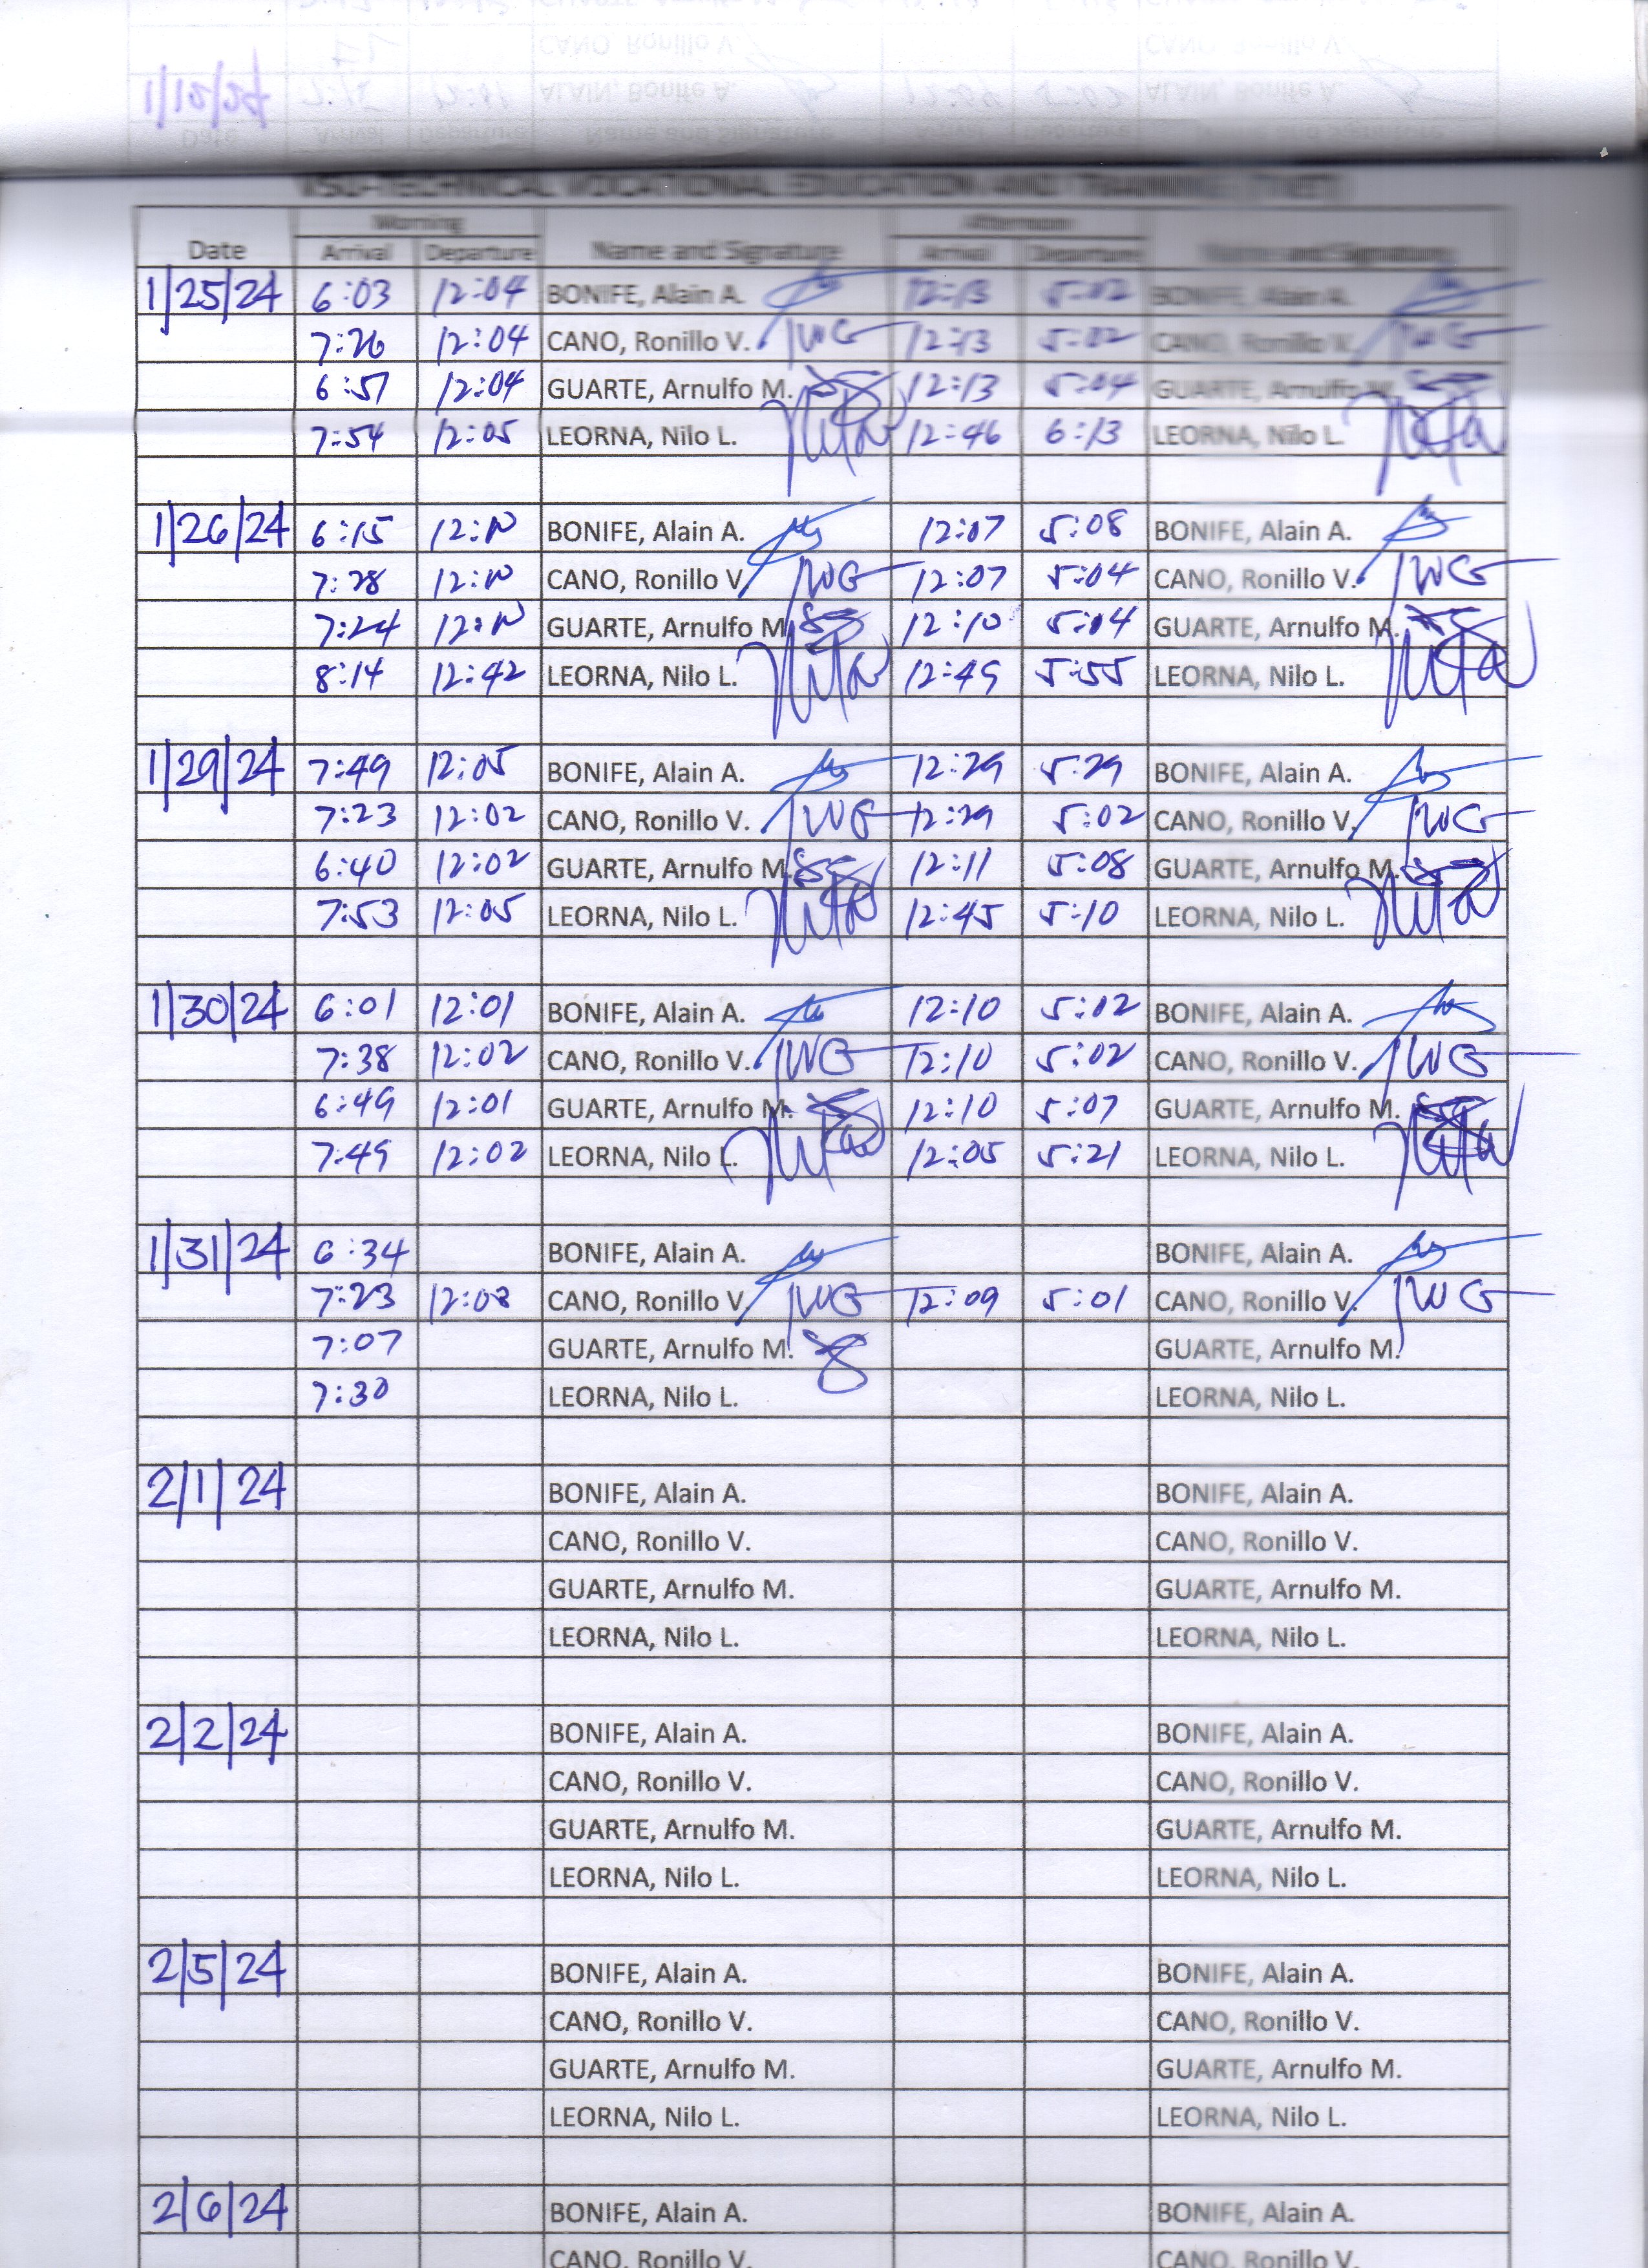 VSU-TECHNICAL VOCATIONAL EDUCATION AND TRAINING (TVET)
Morning Afternoon
Date Arrival Departure Name and Signature Arrival Departure Name and Signature
1/25/24 6:03 12:04 BONIFE, Alain A. 12:13 5:02 BONIFE, Alain A.
7:26 12:04 CANO, Ronillo V. 12:13 5:02 CANO, Ronillo V.
6:51 12:04 GUARTE, Arnulfo M. 12:13 5:04 GUARTE, Arnulfo M.
7:54 12:05 LEORNA, Nilo L. 12:46 6:13 LEORNA, Nilo L.
1/26/24 6:15 12:10 BONIFE, Alain A. 12:07 5:08 BONIFE, Alain A.
7:28 12:10 CANO, Ronillo V. 12:07 5:04 CANO, Ronillo V.
7:24 12:10 GUARTE, Arnulfo M. 12:10 5:04 GUARTE, Arnulfo M.
8:14 12:42 LEORNA, Nilo L. 12:49 5:55 LEORNA, Nilo L.
1/29/24 7:49 12:05 BONIFE, Alain A. 12:29 5:29 BONIFE, Alain A.
7:23 12:02 CANO, Ronillo V. 12:29 5:02 CANO, Ronillo V.
6:40 12:02 GUARTE, Arnulfo M. 12:11 5:08 GUARTE, Arnulfo M.
7:53 12:05 LEORNA, Nilo L. 12:45 5:10 LEORNA, Nilo L.
1/30/24 6:01 12:01 BONIFE, Alain A. 12:10 5:02 BONIFE, Alain A.
7:38 12:02 CANO, Ronillo V. 12:10 5:02 CANO, Ronillo V.
6:49 12:01 GUARTE, Arnulfo M. 12:10 5:07 GUARTE, Arnulfo M.
7:49 12:02 LEORNA, Nilo L. 12:05 5:21 LEORNA, Nilo L.
1/31/24 6:34 BONIFE, Alain A. BONIFE, Alain A.
7:23 12:03 CANO, Ronillo V. 12:09 5:01 CANO, Ronillo V.
7:07 GUARTE, Arnulfo M. GUARTE, Arnulfo M.
7:30 LEORNA, Nilo L. LEORNA, Nilo L.
2/1/24 BONIFE, Alain A. BONIFE, Alain A.
CANO, Ronillo V. CANO, Ronillo V.
GUARTE, Arnulfo M. GUARTE, Arnulfo M.
LEORNA, Nilo L. LEORNA, Nilo L.
2/2/24 BONIFE, Alain A. BONIFE, Alain A.
CANO, Ronillo V. CANO, Ronillo V.
GUARTE, Arnulfo M. GUARTE, Arnulfo M.
LEORNA, Nilo L. LEORNA, Nilo L.
2/5/24 BONIFE, Alain A. BONIFE, Alain A.
CANO, Ronillo V. CANO, Ronillo V.
GUARTE, Arnulfo M. GUARTE, Arnulfo M.
LEORNA, Nilo L. LEORNA, Nilo L.
2/6/24 BONIFE, Alain A. BONIFE, Alain A.
CANO, Ronillo V. CANO, Ronillo V.